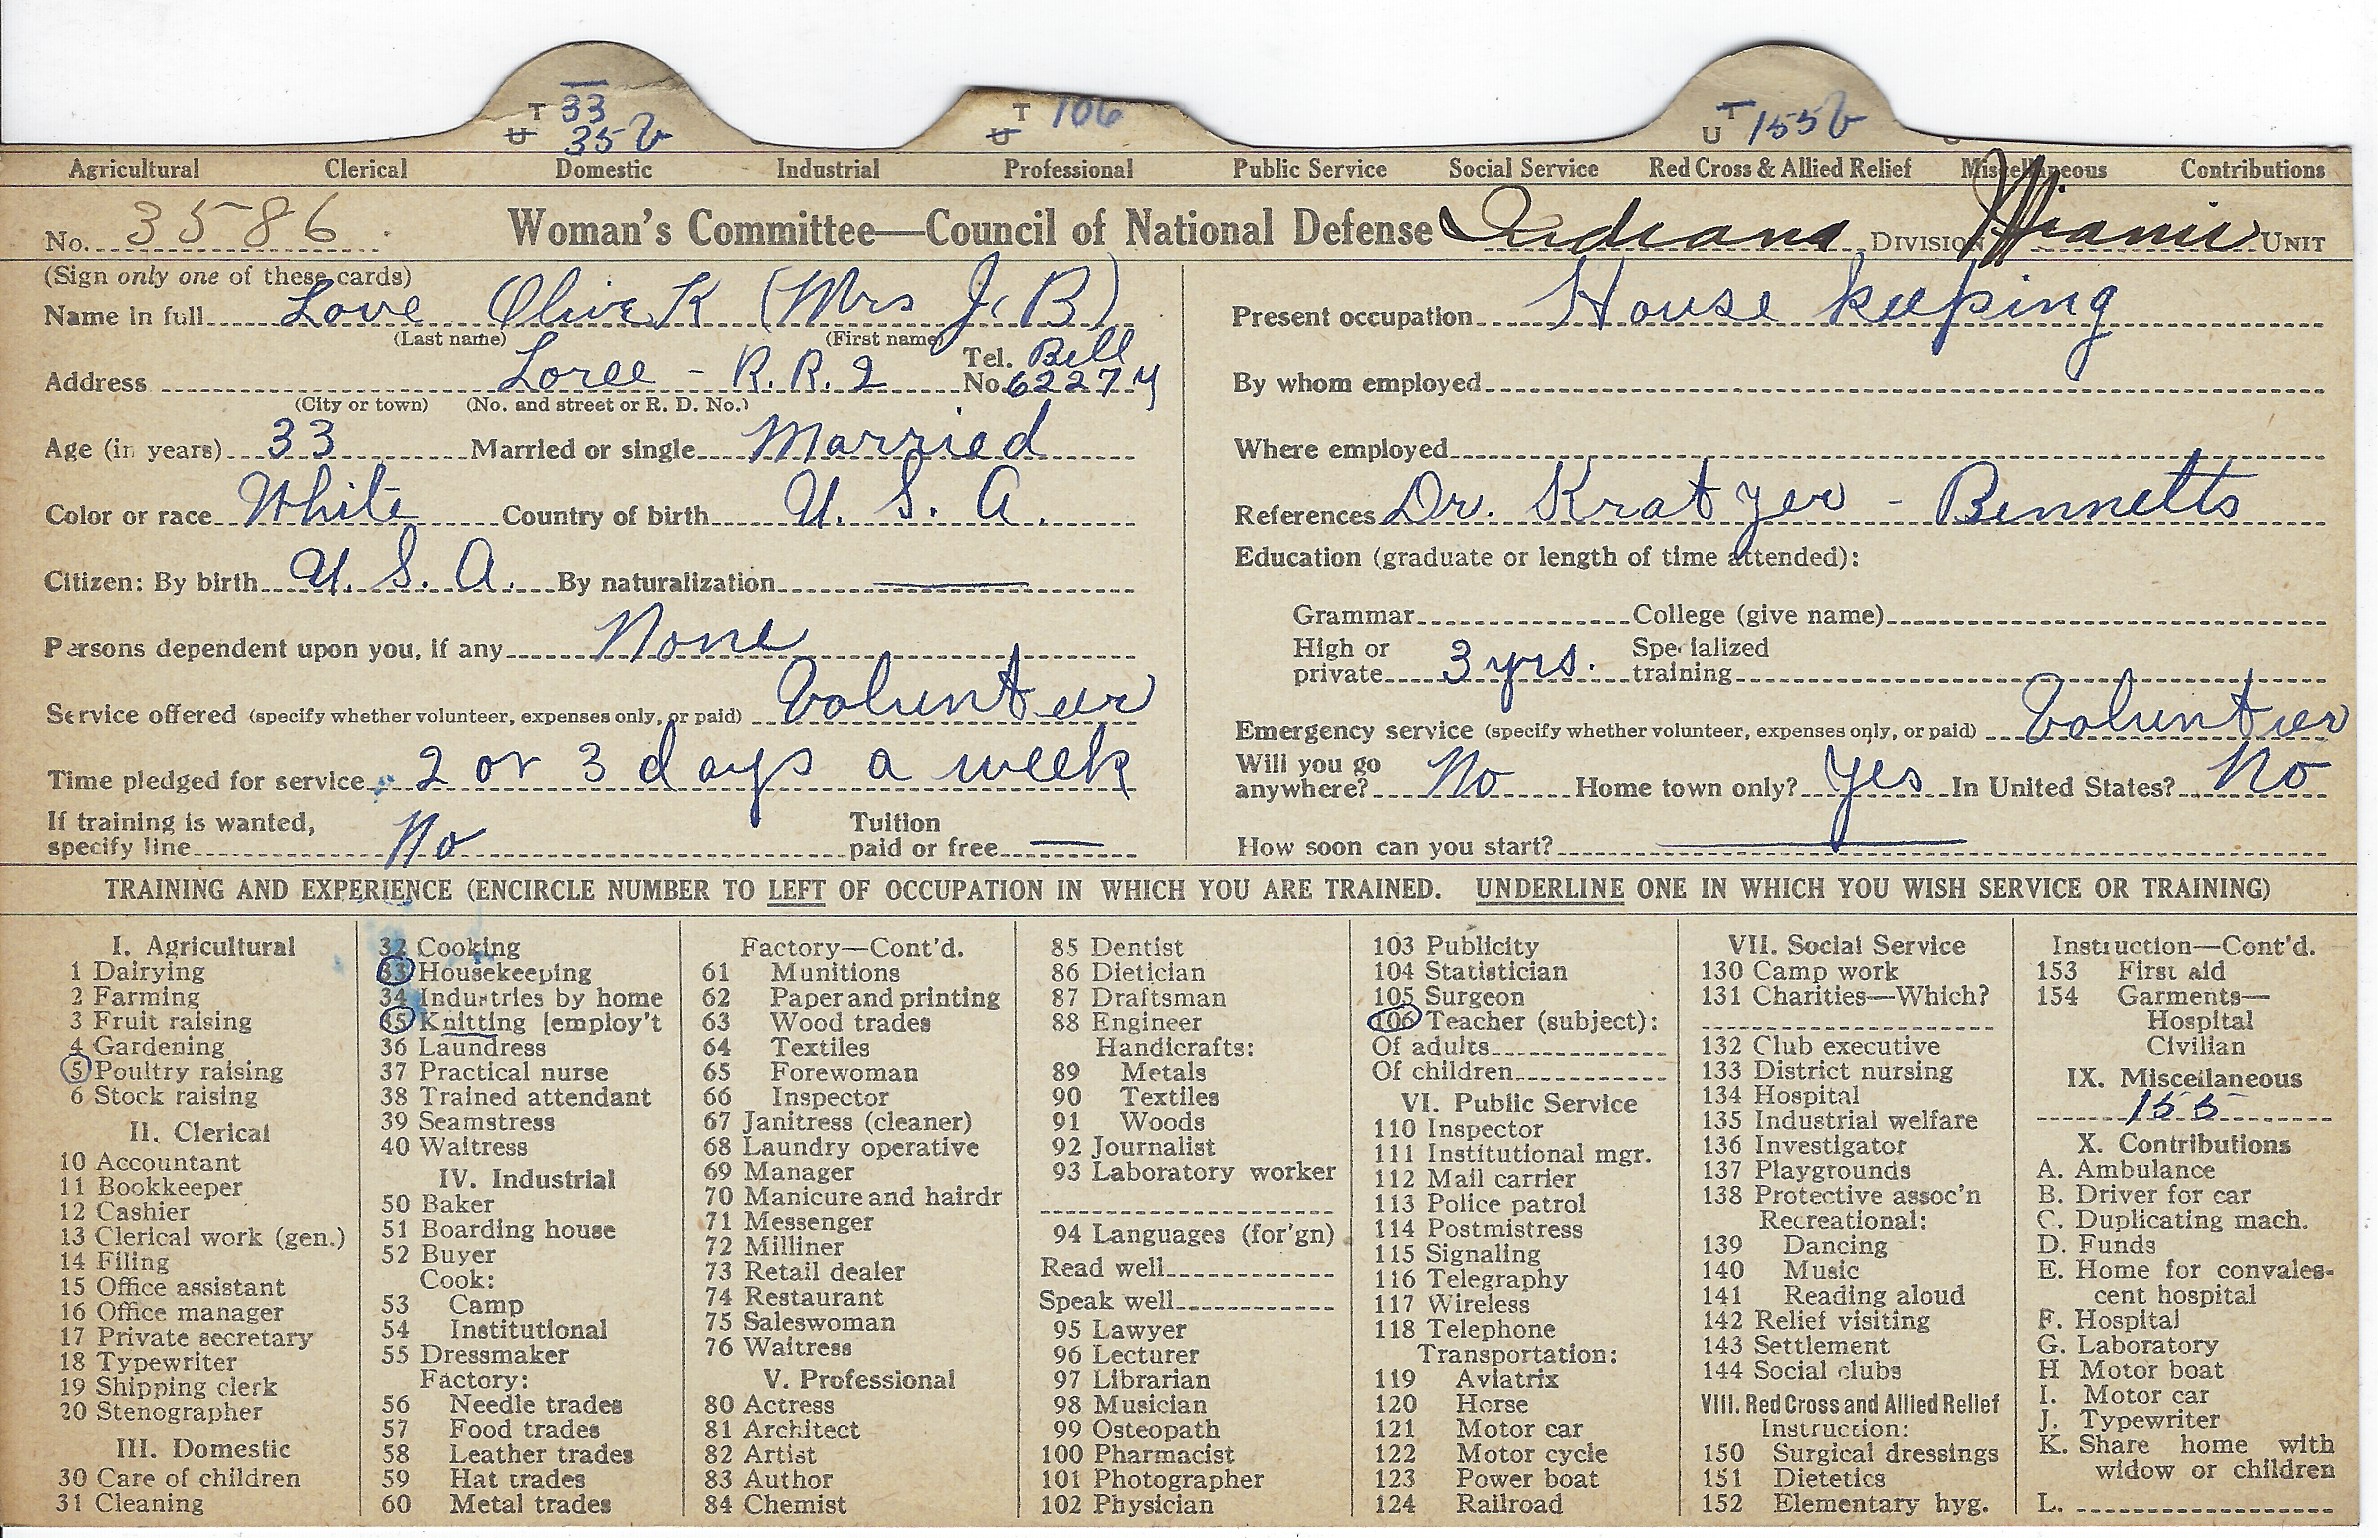 T 33
U 35 b
T 106
U
T
U 155 b
Agricultural Clerical Domestic Industrial Professional Public Service Social Service Red Cross & Allied Relief Miscellaneous Contributions
No. 3586 Woman's Committee—Council of National Defense Indiana DIVISION Miami UNIT
(Sign only one of these cards)
Name in full Love Olive K (Mrs J. B)
(Last name) (First name)
Address Loree - R. R. 2 Tel. No. Bell 6227 y
(City or town) (No. and street or R. D. No.)
Age (in years) 33 Married or single Married
Color or race White Country of birth U. S. A.
Citizen: By birth U. S. A. By naturalization
Persons dependent upon you, if any None
Service offered (specify whether volunteer, expenses only, or paid) Volunteer
Time pledged for service 2 or 3 days a week
If training is wanted, specify line No Tuition paid or free
Present occupation House keeping
By whom employed
Where employed
References Dr. Kratzer - Bennetts
Education (graduate or length of time attended):
Grammar College (give name)
High or private 3 yrs. Specialized training
Emergency service (specify whether volunteer, expenses only, or paid) Volunteer
Will you go anywhere? No Home town only? Yes In United States? No
How soon can you start?
TRAINING AND EXPERIENCE (ENCIRCLE NUMBER TO LEFT OF OCCUPATION IN WHICH YOU ARE TRAINED. UNDERLINE ONE IN WHICH YOU WISH SERVICE OR TRAINING)
I. Agricultural
1 Dairying
2 Farming
3 Fruit raising
4 Gardening
5 Poultry raising
6 Stock raising
II. Clerical
10 Accountant
11 Bookkeeper
12 Cashier
13 Clerical work (gen.)
14 Filing
15 Office assistant
16 Office manager
17 Private secretary
18 Typewriter
19 Shipping clerk
20 Stenographer
III. Domestic
30 Care of children
31 Cleaning
32 Cooking
33 Housekeeping
34 Industries by home
35 Knitting [employ't
36 Laundress
37 Practical nurse
38 Trained attendant
39 Seamstress
40 Waitress
IV. Industrial
50 Baker
51 Boarding house
52 Buyer
Cook:
53 Camp
54 Institutional
55 Dressmaker
Factory:
56 Needle trades
57 Food trades
58 Leather trades
59 Hat trades
60 Metal trades
Factory—Cont'd.
61 Munitions
62 Paper and printing
63 Wood trades
64 Textiles
65 Forewoman
66 Inspector
67 Janitress (cleaner)
68 Laundry operative
69 Manager
70 Manicure and hairdr
71 Messenger
72 Milliner
73 Retail dealer
74 Restaurant
75 Saleswoman
76 Waitress
V. Professional
80 Actress
81 Architect
82 Artist
83 Author
84 Chemist
85 Dentist
86 Dietician
87 Draftsman
88 Engineer
Handicrafts:
89 Metals
90 Textiles
91 Woods
92 Journalist
93 Laboratory worker
94 Languages (for'gn)
Read well
Speak well
95 Lawyer
96 Lecturer
97 Librarian
98 Musician
99 Osteopath
100 Pharmacist
101 Photographer
102 Physician
103 Publicity
104 Statistician
105 Surgeon
106 Teacher (subject):
Of adults
Of children
VI. Public Service
110 Inspector
111 Institutional mgr.
112 Mail carrier
113 Police patrol
114 Postmistress
115 Signaling
116 Telegraphy
117 Wireless
118 Telephone
Transportation:
119 Aviatrix
120 Horse
121 Motor car
122 Motor cycle
123 Power boat
124 Railroad
VII. Social Service
130 Camp work
131 Charities—Which?
132 Club executive
133 District nursing
134 Hospital
135 Industrial welfare
136 Investigator
137 Playgrounds
138 Protective assoc'n
Recreational:
139 Dancing
140 Music
141 Reading aloud
142 Relief visiting
143 Settlement
144 Social clubs
VIII. Red Cross and Allied Relief
Instruction:
150 Surgical dressings
151 Dietetics
152 Elementary hyg.
Instruction—Cont'd.
153 First aid
154 Garments—
Hospital
Civilian
IX. Miscellaneous
155
X. Contributions
A. Ambulance
B. Driver for car
C. Duplicating mach.
D. Funds
E. Home for convales-
cent hospital
F. Hospital
G. Laboratory
H Motor boat
I. Motor car
J. Typewriter
K. Share home with
widow or children
L.